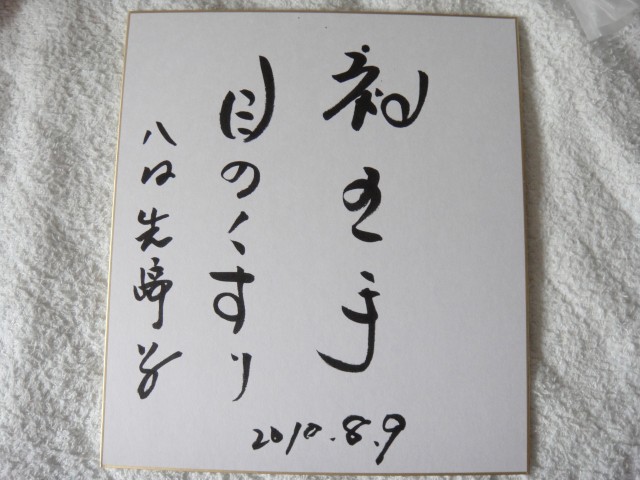 初王手
目のくすり
八段 先崎学
2010.8.9